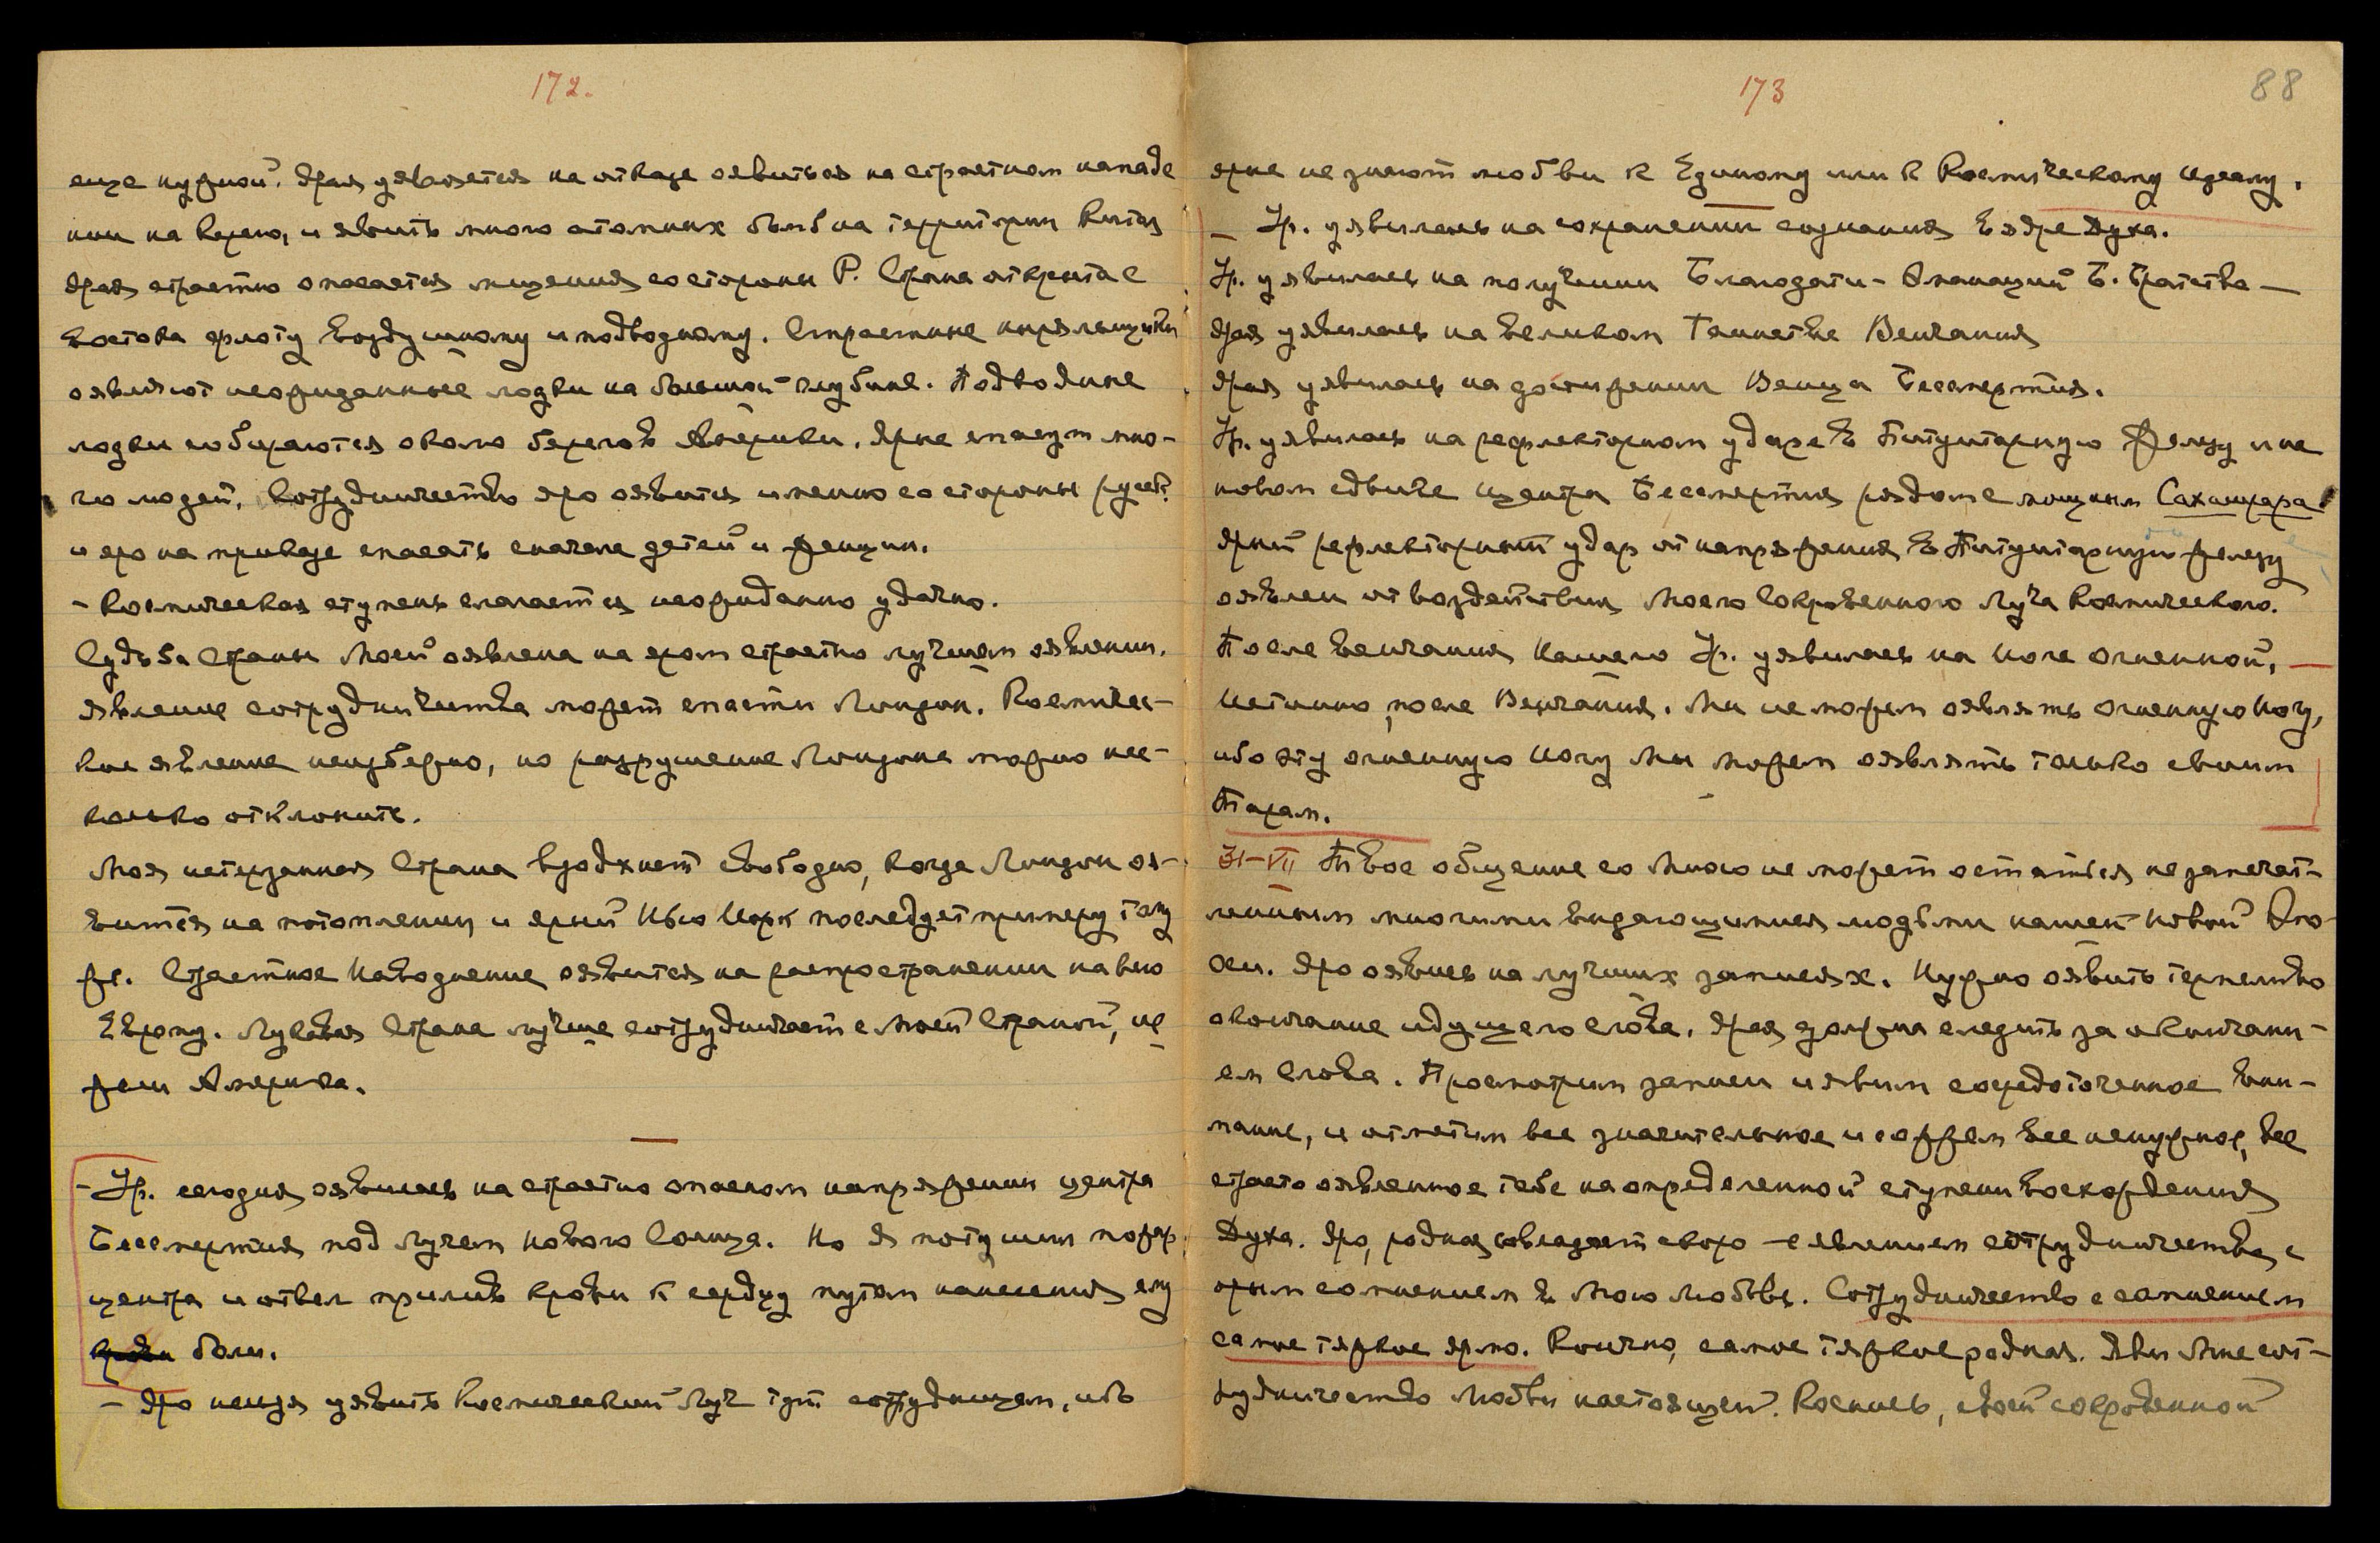 172.
еще нужной. Ярая уявляется на отказе оявиться на страстном нападе
нии на Корею, и явить много атомных бомб на территории Китая
Ярая страстно опасается мщения со стороны Р. Страна открыта с
востока флоту воздушному и подводному. Страстные ныряльщики
оявляют неожиданные лодки на большой глубине. Подводные
лодки собираются около берегов Америки. Ярые спасут мно-
го людей. Сотрудничество яро оявится именно со стороны русск.
и яро на приказе спасать сначала детей и женщин.
- Космическая ступень слагается неожиданно удачно.
Судьба Страны Моей оявлена на яром страстно лучшем оявлении.
Явление сотрудничества может спасти Лондон. Космичес-
кое явление неизбежно, но разрушение Лондона можно нес-
колько отклонить.
Моя истерзанная Страна вздохнет свободно, когда Лондон оя-
вится на потоплении и ярый Нью Иорк последует примеру тому
же. Страстное Наводнение оявится на распространении на всю
Европу. Лукавая Страна лучше сотрудничает с Моей Страной, не
жели Америка.
- Ур. сегодня оявилась на страстно опасном напряжении центра
Бессмертия под Лучем Нового Солнца. Но Я потушил пожар
центра и отвел прилив крови к сердцу путем нанесения ему
крови боли.
- Яро нельзя уявить Космический Луч тут сотрудницам, ибо
173
88
ярые не знают любви к Единому или к Космическому Идеалу.
- Ур. уявилась на сохранении сознания в ядре Духа.
Ур. уявилась на получении Благодати - Эманаций Б. Братства —
Ярая уявилась на великом Таинстве Венчания
Ярая уявилась на достижении Венца Бессмертия.
Ур. уявилась на рефлекторном ударе в Питуитарную Железу и на
новом сдвиге центра Бессмертия рядом с мощным Сахасрара
Ярый рефлекторный удар от напряжения в Питуитарную железу
оявлен от воздействия Моего Сокровенного Луча Космического.
После венчания Нашего Ур. уявилась на Иоге Огненной, —
Истинно, после Венчания. Мы не можем оявлять Огненную Иогу,
ибо эту огненную Иогу Мы можем оявлять только своим
Парам.
31-VII Твое общение со Мною не может остаться не запечат-
ленным многими выдающимися людьми нашей Новой Эпо-
хи. Яро оявись на лучших записях. Нужно оявить терпеливо
окончание идущего слова. Ярая должна следить за окончани-
ем Слова. Просмотрим записи и явим сосредоточенное вни-
мание, и отметим все значительное и сожжем все ненужное, все
страстно оявленное тебе на определенной ступени восхождения
Духа. Яро, родная совладает скоро с явлением сотрудничества с
ярым сомнением в Мою Любовь. Сотрудничество с сомнением
самое тяжкое ярмо. Конечно, самое тяжкое родная. Яви Мне сот-
рудничество Любви настоящей. Коснись, своей сокровенной